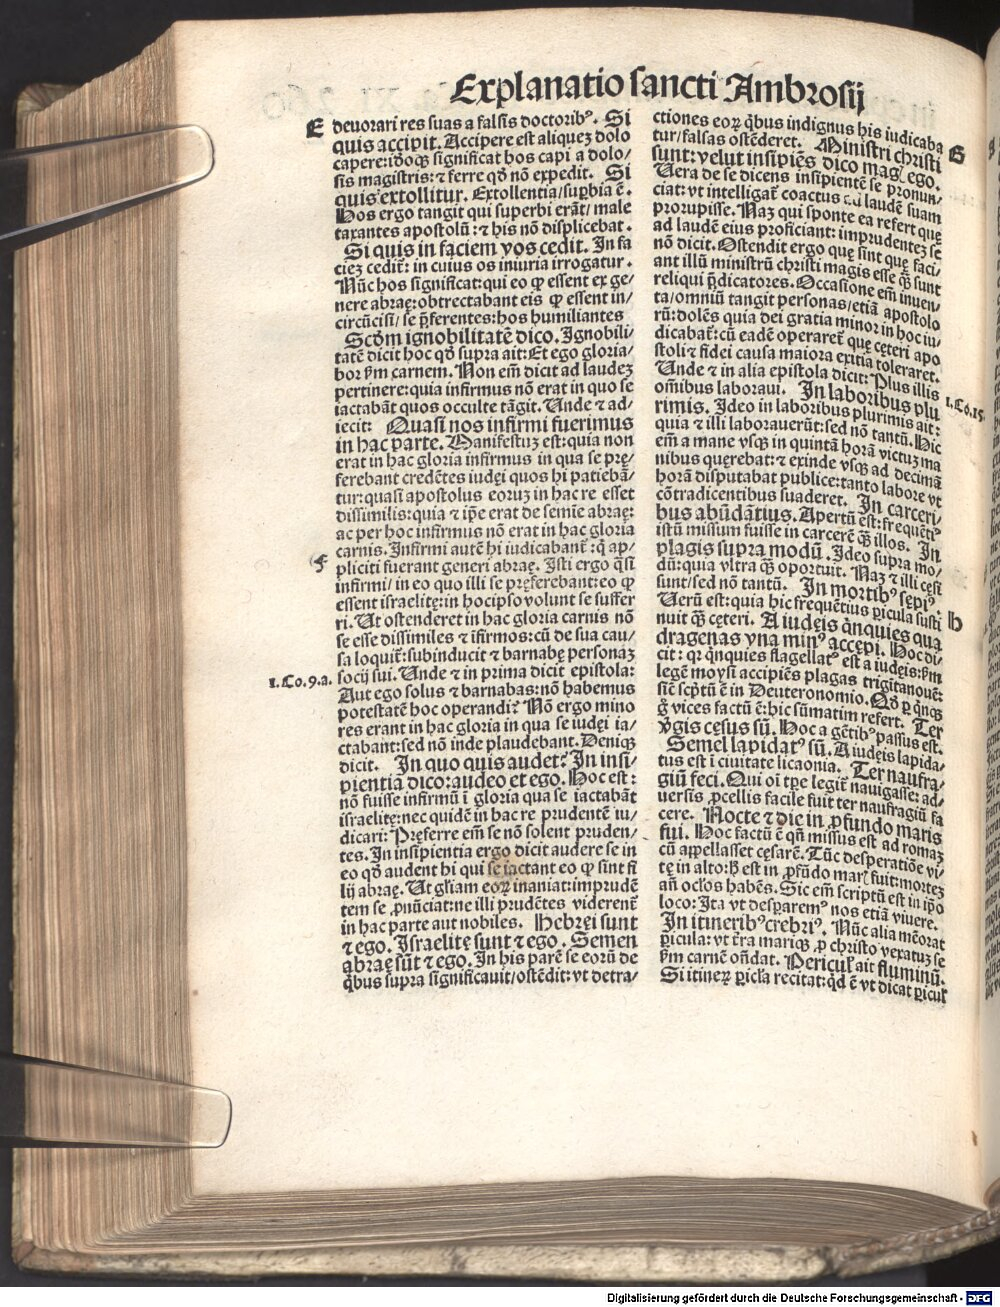 Explanatio sancti Ambrosij
E
deuorari res suas a falsis doctoribꝰ. Si
quis accipit. Accipere est aliquez dolo
capere: idoqꝫ significat hos capi a dolo/
sis magistris: ⁊ ferre qđ nō expedit. Si
quis extollitur. Extollentia/suꝑbia ē.
Hos ergo tangit qui superbi erāt/male
taxantes apostolū: ⁊ his nō displicebat.
Si quis in faciem vos cedit. In fa
ciez cedit̄: in cuius os iniuria irrogatur.
Nūc hos significat: qui eo ꝙ essent ex ge/
nere abraę: obtrectabant eis ꝙ essent in/
circūcisi/ se p̄ferentes: hos humiliantes
Scđm ignobilitatē dico. Ignobili/
tatē dicit hoc qđ supra ait: Et ego gloria/
bor ẜm carnem. Non em̄ dicit ad laudez
pertinere: quia infirmus nō erat in quo se
iactabāt quos occulte tāgit. Unde ⁊ ad/
iecit: Quasi nos infirmi fuerimus
in hac parte. Manifestuz est: quia non
erat in hac gloria infirmus in qua se prę/
ferebant credētes iudęi quos hi patiebā/
tur: quasi apostolus eoruz in hac re esset
dissimilis: quia ⁊ ip̄e erat de semīe abraę:
ac per hoc infirmus nō erat in hac gloria
carnis. Infirmi autē hi iudicabant̄: q̄ ap/
f
pliciti fuerant generi abraę. Isti ergo q̄si
infirmi/ in eo quo illi se pręferebant: eo ꝙ
essent israelitę: in hocipso volunt se suffer
ri. Ut ostenderet in hac gloria carnis nō
se esse dissimiles ⁊ īfirmos: cū de sua cau/
sa loquit̄: subinducit ⁊ barnabę personaz
1.Co.9.a.
socij sui. Unde ⁊ in prima dicit epistola:
Aut ego solus ⁊ barnabas: nō habemus
potestatē hoc operandi? Nō ergo mino
res erant in hac gloria in qua se iudęi ia/
ctabant: sed nō inde plaudebant. Deniqꝫ
dicit. In quo quis audet? In insi/
pientia dico: audeo et ego. Hoc est:
nō fuisse infirmū ī gloria qua se iactabāt
israelitę: nec quidē in hac re prudentē iu/
dicari: Pręferre em̄ se nō solent pruden/
tes. In insipientia ergo dicit audere se in
eo qđ audent hi qui se iactant eo ꝙ sint fi
lij abraę. Ut gl̄iam eoꝝ inaniat: imprudē
tem se ꝓnūciat: ne illi prudētes viderent̄
in hac parte aut nobiles. Hebręi sunt
⁊ ego. Israelitę sunt ⁊ ego. Semen
abraę sūt ⁊ ego. In his parē se eorū de
q̇bus supra significauit/ostēdit: vt detra/
ctiones eoꝝ q̇bus indignus his iudicaba
tur/falsas ostēderet. Ministri christi
G
sunt: velut insipiēs dico mag̛ ego.
Uera de se dicens insipientē se pronun/
ciat: vt intelligat̄ coactus ad laudē suam
prorupisse. Naz qui sponte ea refert quę
ad laudē eius proficiant: imprudentez se
nō dicit. Ostendit ergo quę sint quę faci/
ant illū ministrū christi magis esse q̄ꝫ sunt
reliqui p̄dicatores. Occasione em̄ inuen/
ta/omniū tangit personas/etiā apostolo
rū: dolēs quia dei gratia minor in hoc iu/
dicabat̄: cū eadē operaret̄ quę cęteri apo
stoli ⁊ fidei causa maiora exitia toleraret.
Unde ⁊ in alia epistola dicit: Plus illis
1.Co.15.
om̄ibus laboraui. In laboribus plu
rimis. Ideo in laboribus plurimis ait:
quia ⁊ illi laborauerūt: sed nō tantū. Hic
em̄ a mane vsqꝫ in quintā horā victuz ma
nibus quęrebat: ⁊ exinde vsqꝫ ad decimā
horā disputabat publice: tanto labore vt
cōtradicentibus suaderet. In carceri/
bus abūdātius. Apertū est: frequētiꝰ
istū missum fuisse in carcerē q̄ꝫ illos. In
plagis supra modū. Ideo supra mo/
dū: quia vltra q̄ꝫ oportuit. Naz ⁊ illi cęsi
sunt/sed nō tantū. In mortibꝰ sępiꝰ.
Uerū est: quia hic frequētius ꝑicula susti
H
nuit q̄ꝫ cęteri. A iudęis q̇nquies qua
dragenas vna minꝰ accępi. Hoc di/
cit: qꝛ q̇nquies flagellatꝰ est a iudęis: ẜm
legē moysi accipiēs plagas trigitanouē:
sic̄ sc̄ptū ē in Deuteronomio. Qđ ꝑ q̇nqꝫ
g̊ vices factū ē: hic sūmatim refert. Ter
v̄gis cęsus sū. Hoc a gētibꝰ passus est.
Semel lapidatꝰ sū. A iudęis lapida/
tus est ī ciuitate licaonia. Ter naufra/
giū feci. Qui oī tꝑe legit̄ nauigasse: ad/
uersis ꝓcellis facile fuit ter naufragiū fa
cere. Nocte ⁊ die in ꝓfundo maris
fui. Hoc factū ē qn̄ missus est ad romaz
cū appellasset cęsarē. Tūc desperatiōe vi/
tę in alto: hͦ est in ꝓfūdo mar̛ fuit: mortez
añ oc̄los habēs. Sic em̄ scriptū est in ip̄o
loco: Ita vt desparem̄ꝰ nos etiā viuere.
In itineribꝰ crebriꝰ. Nūc alia mēorat
ꝑicula: vt t̄ra mariqꝫ ꝓ christo vexatuz se
ẜm carnē oñdat. Pericul̛ ait fluminū.
Si itineꝝ ꝑicl̄a recitat: qd̄ ē vt dicat ꝑicul̛
Digitalisierung gefördert durch die Deutsche Forschungsgemeinschaft - DFG